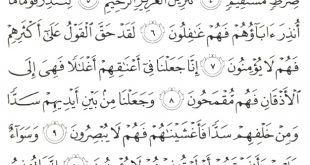 صِرَٰطٍ مُّسْتَقِيمٍ ٤ تَنزِيلَ ٱلْعَزِيزِ ٱلرَّحِيمِ ٥ لِتُنذِرَ قَوْمًا مَّآ
أُنذِرَ ءَابَآؤُهُمْ فَهُمْ غَٰفِلُونَ ٦ لَقَدْ حَقَّ ٱلْقَوْلُ عَلَىٰٓ أَكْثَرِهِمْ
فَهُمْ لَا يُؤْمِنُونَ ٧ إِنَّا جَعَلْنَا فِىٓ أَعْنَٰقِهِمْ أَغْلَٰلًا فَهِىَ إِلَى
ٱلْأَذْقَانِ فَهُم مُّقْمَحُونَ ٨ وَجَعَلْنَا مِنۢ بَيْنِ أَيْدِيهِمْ سَدًّا
وَمِنْ خَلْفِهِمْ سَدًّا فَأَغْشَيْنَٰهُمْ فَهُمْ لَا يُبْصِرُونَ ٩ وَسَوَآءٌ